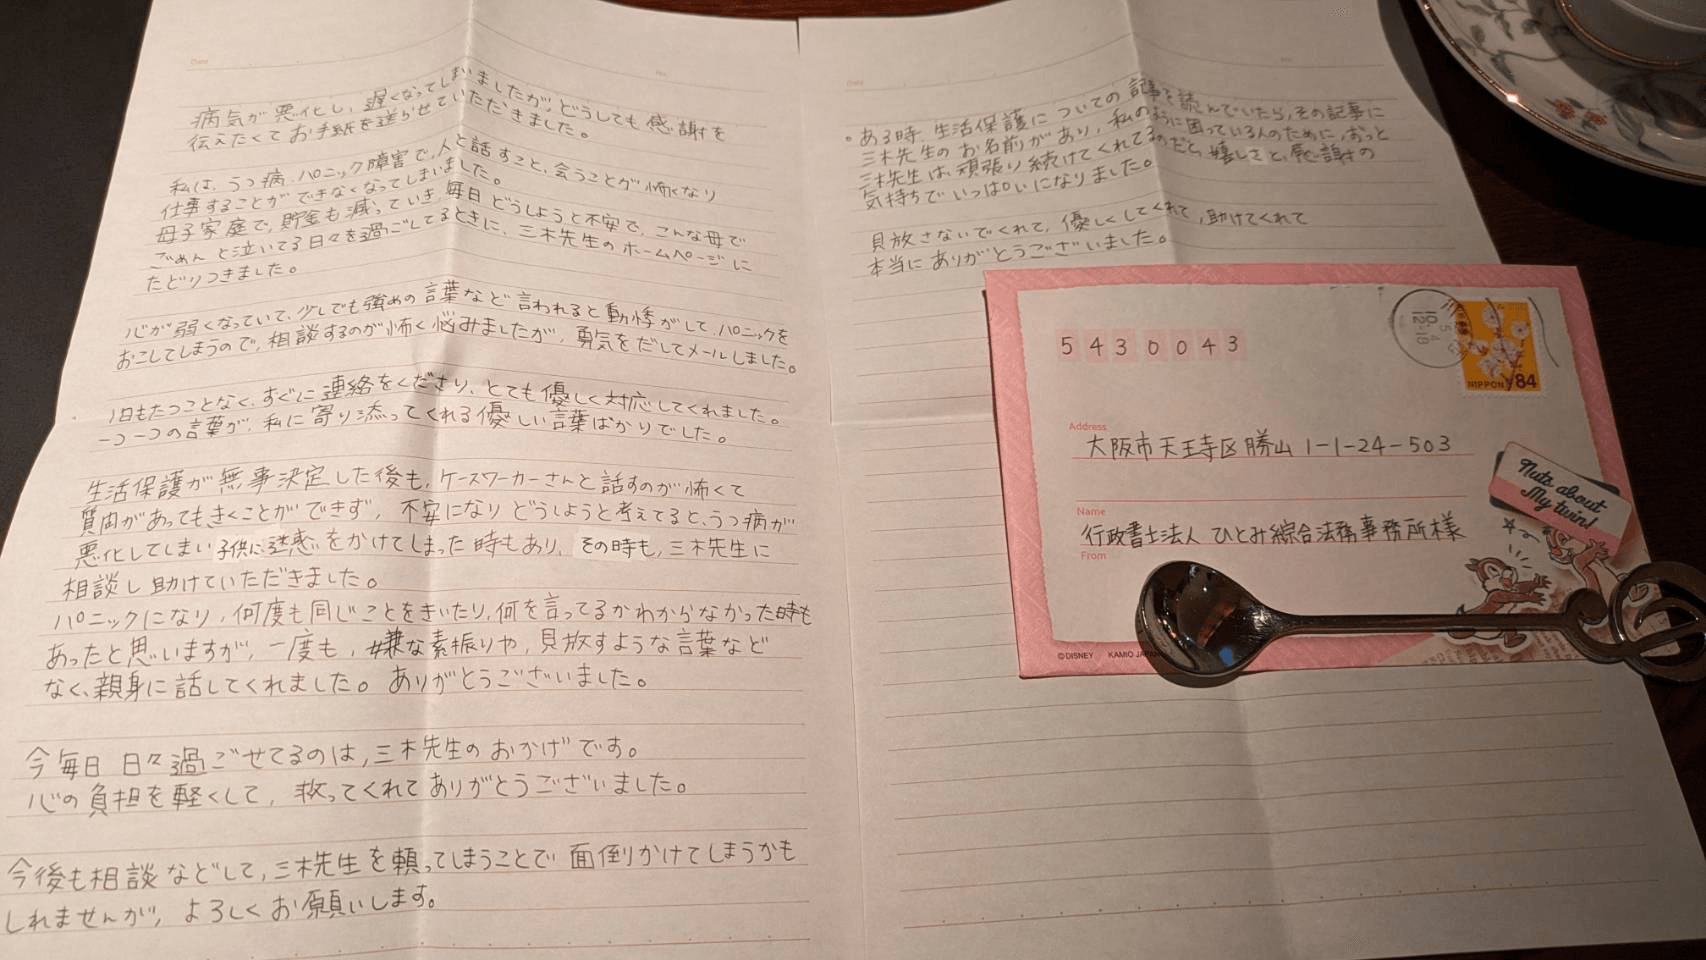 Date
No.
病気が悪化し、遅くなってしまいましたが、どうしても感謝を
伝えたくてお手紙を送らせていただきました。
私は、うつ病、パニック障害で、人と話すこと、会うことが怖くなり
仕事することができなくなってしまいました。
母子家庭で、貯金も減っていき、毎日どうしようと不安で、こんな母で
ごめんと泣いてる日々を過ごしてるときに、三木先生のホームページに
たどりつきました。
心が弱くなっていて、少しでも強めの言葉など言われると動悸がして、パニックを
おこしてしまうので、相談するのが怖く悩みましたが、勇気をだしてメールしました。
1日もたつことなく、すぐに連絡をくださり、とても優しく対応してくれました。
一つ一つの言葉が、私に寄り添ってくれる優しい言葉ばかりでした。
生活保護が無事決定した後も、ケースワーカーさんと話すのが怖くて
質問があってもきくことができず、不安になりどうしようと考えてると、うつ病が
悪化してしまい子供に迷惑をかけてしまった時もあり、その時も、三木先生に
相談し助けていただきました。
パニックになり、何度も同じことをきいたり、何を言ってるかわからなかった時も
あったと思いますが、一度も、嫌な素振りや、見放すような言葉など
なく、親身に話してくれました。ありがとうございました。
今毎日日々過ごせてるのは、三木先生のおかげです。
心の負担を軽くして、救ってくれてありがとうございました。
今後も相談などして、三木先生を頼ってしまうことで面倒かけてしまうかも
しれませんが、よろしくお願いします。
Date
No.
。ある時、生活保護についての記事を読んでいたら、その記事に
三木先生のお名前があり、私のように困っている人のために、ずっと
三木先生は、頑張り続けてくれてるのだと、嬉しさと、感謝の
気持ちでいっぱいになりました。
見放さないでくれて、優しくしてくれて、助けてくれて
本当にありがとうございました。
5430043
NIPPON ¥84
Address
大阪市天王寺区勝山1-1-24-503
Name
行政書士法人 ひとみ綜合法務事務所様
From
Nuts about
My twin!
©DISNEY KAMIO JAPAN